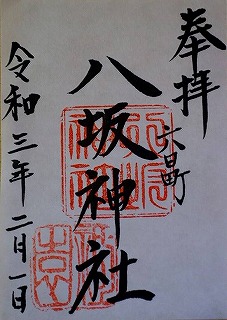 奉拝
八坂神社
令和三年二月一日